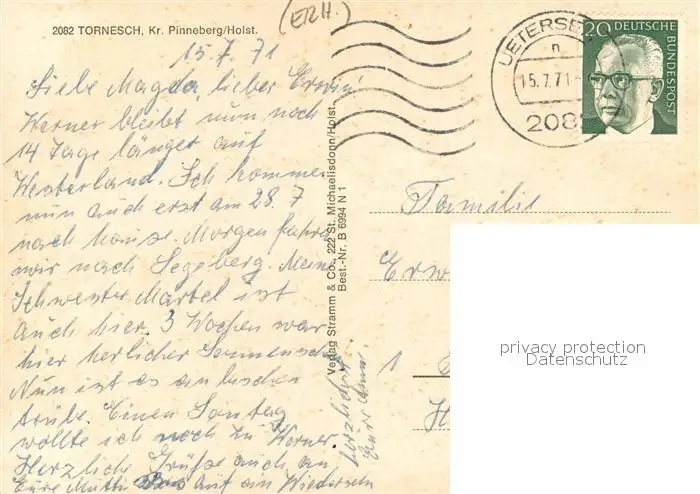 2082 TORNESCH, Kr. Pinneberg/Holst.
(ERH.)
15.7.71
Liebe Magda, lieber Erwin
Werner bleibt nun noch
14 Tage länger auf
Westerland. Ich komme
nun auch erst am 28.7
nach hause. Morgen fahren
wir nach Segeberg. Meine
Schwester Martel ist
auch hier. 3 Wochen war
hier herlicher Sonnensch
Nun ist es ein bischen
trübe. Einen Sontag
wollte ich noch zu Werner.
Herzliche Grüße auch an
Eure Mutti Auf ein Wiedersehn
herzlichst
Eure
Verlag Stramm & Co., 222 St. Michaelisdonn/Holst.
Best.-Nr. B 6994 N 1
UETERSE
n
15.7.71
208
20 DEUTSCHE
BUNDESPOST
Familie
Erw
1
H
privacy protection
Datenschutz